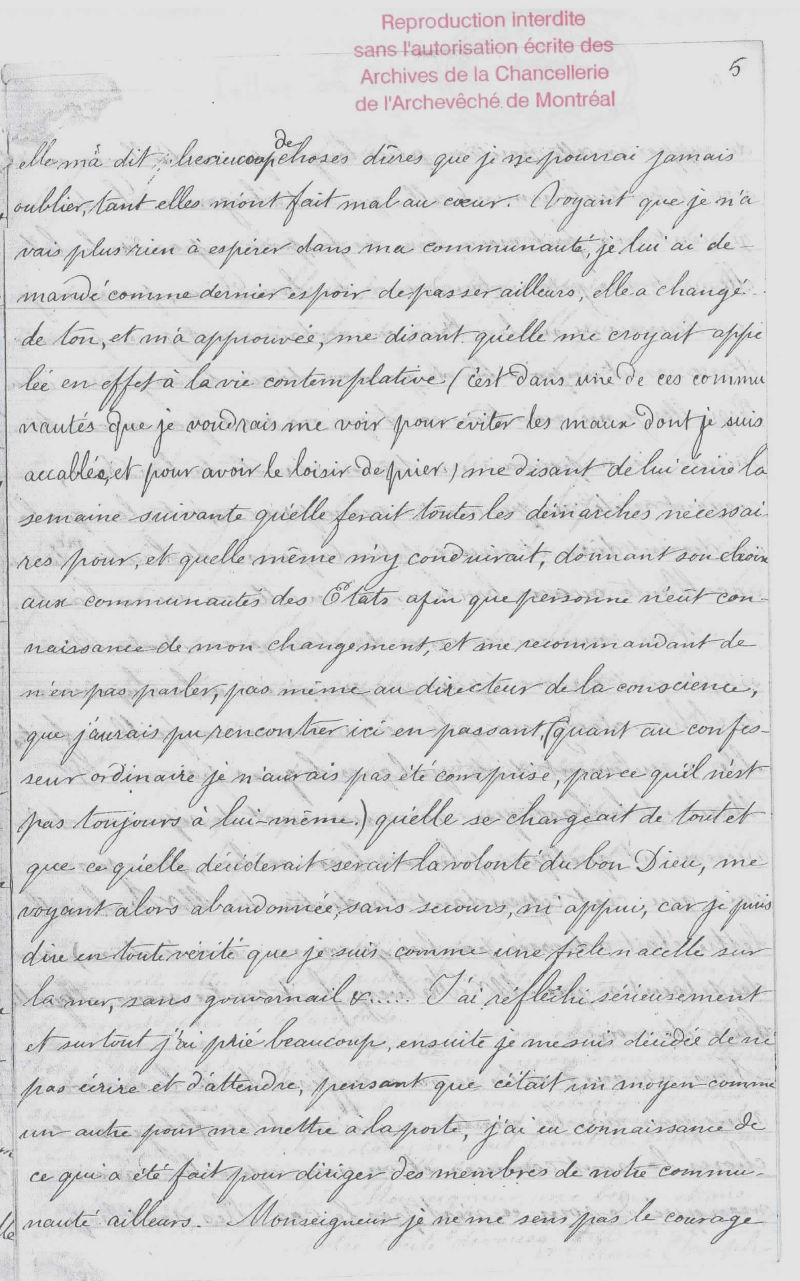 Reproduction interdite
sans l'autorisation écrite des
Archives de la Chancellerie
de l'Archevêché de Montréal
5
elle m'a dit, beaucoup de choses dûres que je ne pourrai jamais
oublier, tant elles m'ont fait mal au cœur. Voyant que je n'a
vais plus rien à espérer dans ma communauté, je lui ai de-
mandé comme dernier espoir de passer ailleurs, elle a changé
de ton, et m'a approuvée, me disant qu'elle me croyait appe
lée en effet à la vie contemplative (c'est dans une de ces commu
nautés que je voudrais me voir pour éviter les maux dont je suis
accablée, et pour avoir le loisir de prier) me disant de lui écrire la
semaine suivante qu'elle ferait toutes les démarches nécessai-
res pour, et quelle même m'y conduirait, donnant son choix
aux communautés des Etats afin que personne n'eût con-
naissance de mon changement, et me recommandant de
n'en pas parler, pas même au directeur de la conscience,
que j'aurais pu rencontrer ici en passant, (quant au confes-
seur ordinaire je n'aurais pas été comprise, parce qu'il n'est
pas toujours à lui-même.) qu'elle se chargeait de tout et
que ce qu'elle déciderait serait la volonté du bon Dieu, me
voyant alors abandonnée, sans secours, ni appui, car je puis
dire en toute vérité que je suis comme une frêle nacelle sur
la mer, sans gouvernail &..... J'ai réfléchi sérieusement
et surtout j'ai prié beaucoup, ensuite je me suis décidée de ne
pas écrire et d'attendre, pensant que c'était un moyen comme
un autre pour me mettre à la porte, j'ai eu connaissance de
ce qui a été fait pour diriger des membres de notre commu-
nauté ailleurs. Monseigneur je ne me sens pas le courage